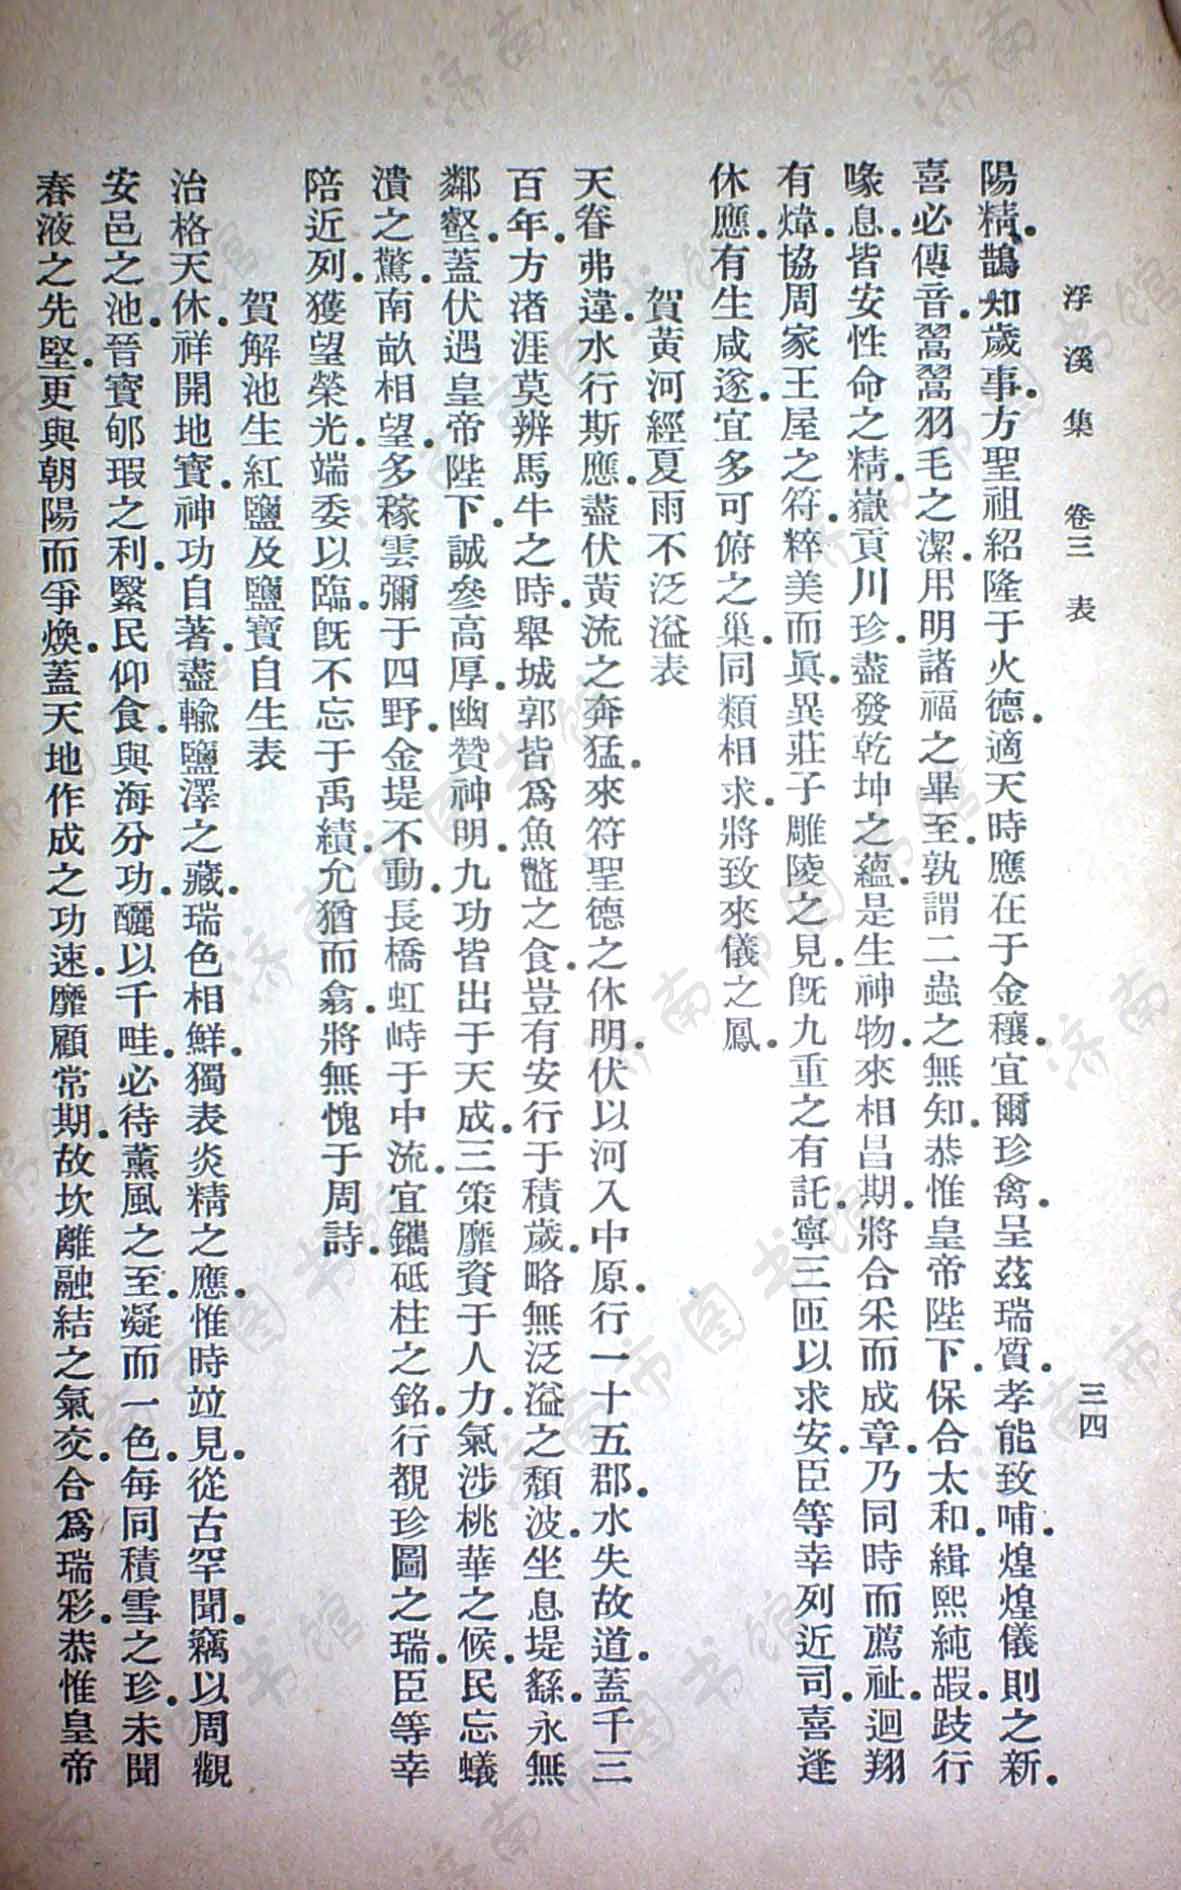 浮溪集 卷三 表 三四
陽精鵲知歲事方聖祖紹隆于火德適天時應在于金穰宜爾珍禽呈茲瑞質孝能致哺煌煌儀則之新
喜必傳音翯翯羽毛之潔用明諸福之畢至孰謂二蟲之無知恭惟皇帝陛下保合太和緝熙純嘏跂行
喙息皆安性命之精嶽貢川珍盡發乾坤之蘊是生神物來相昌期將合采而成章乃同時而薦祉迴翔
有煒協周家王屋之符粹美而眞異莊子雕陵之見旣九重之有託寧三匝以求安臣等幸列近司喜逢
休應有生咸遂宜多可俯之巢同類相求將致來儀之鳳
賀黃河經夏雨不泛溢表
天眷弗違水行斯應盡伏黃流之奔猛來符聖德之休明伏以河入中原行一十五郡水失故道蓋千三
百年方渚涯莫辨馬牛之時舉城郭皆爲魚鼈之食豈有安行于積歲略無泛溢之頹波坐息堤繇永無
鄰壑蓋伏遇皇帝陛下誠參高厚幽贊神明九功皆出于天成三策靡資于人力氣涉桃華之候民忘蟻
潰之驚南畝相望多稼雲彌于四野金堤不動長橋虹峙于中流宜鑴砥柱之銘行覩珍圖之瑞臣等幸
陪近列獲望榮光端委以臨旣不忘于禹績允猶而翕將無愧于周詩
賀解池生紅鹽及鹽寶自生表
治格天休祥開地寶神功自著盡輸鹽澤之藏瑞色相鮮獨表炎精之應惟時竝見從古罕聞竊以周觀
安邑之池晉寶郇瑕之利繄民仰食與海分功釃以千畦必待薰風之至凝而一色每同積雪之珍未聞
春液之先堅更與朝陽而爭煥蓋天地作成之功速靡顧常期故坎離融結之氣交合爲瑞彩恭惟皇帝